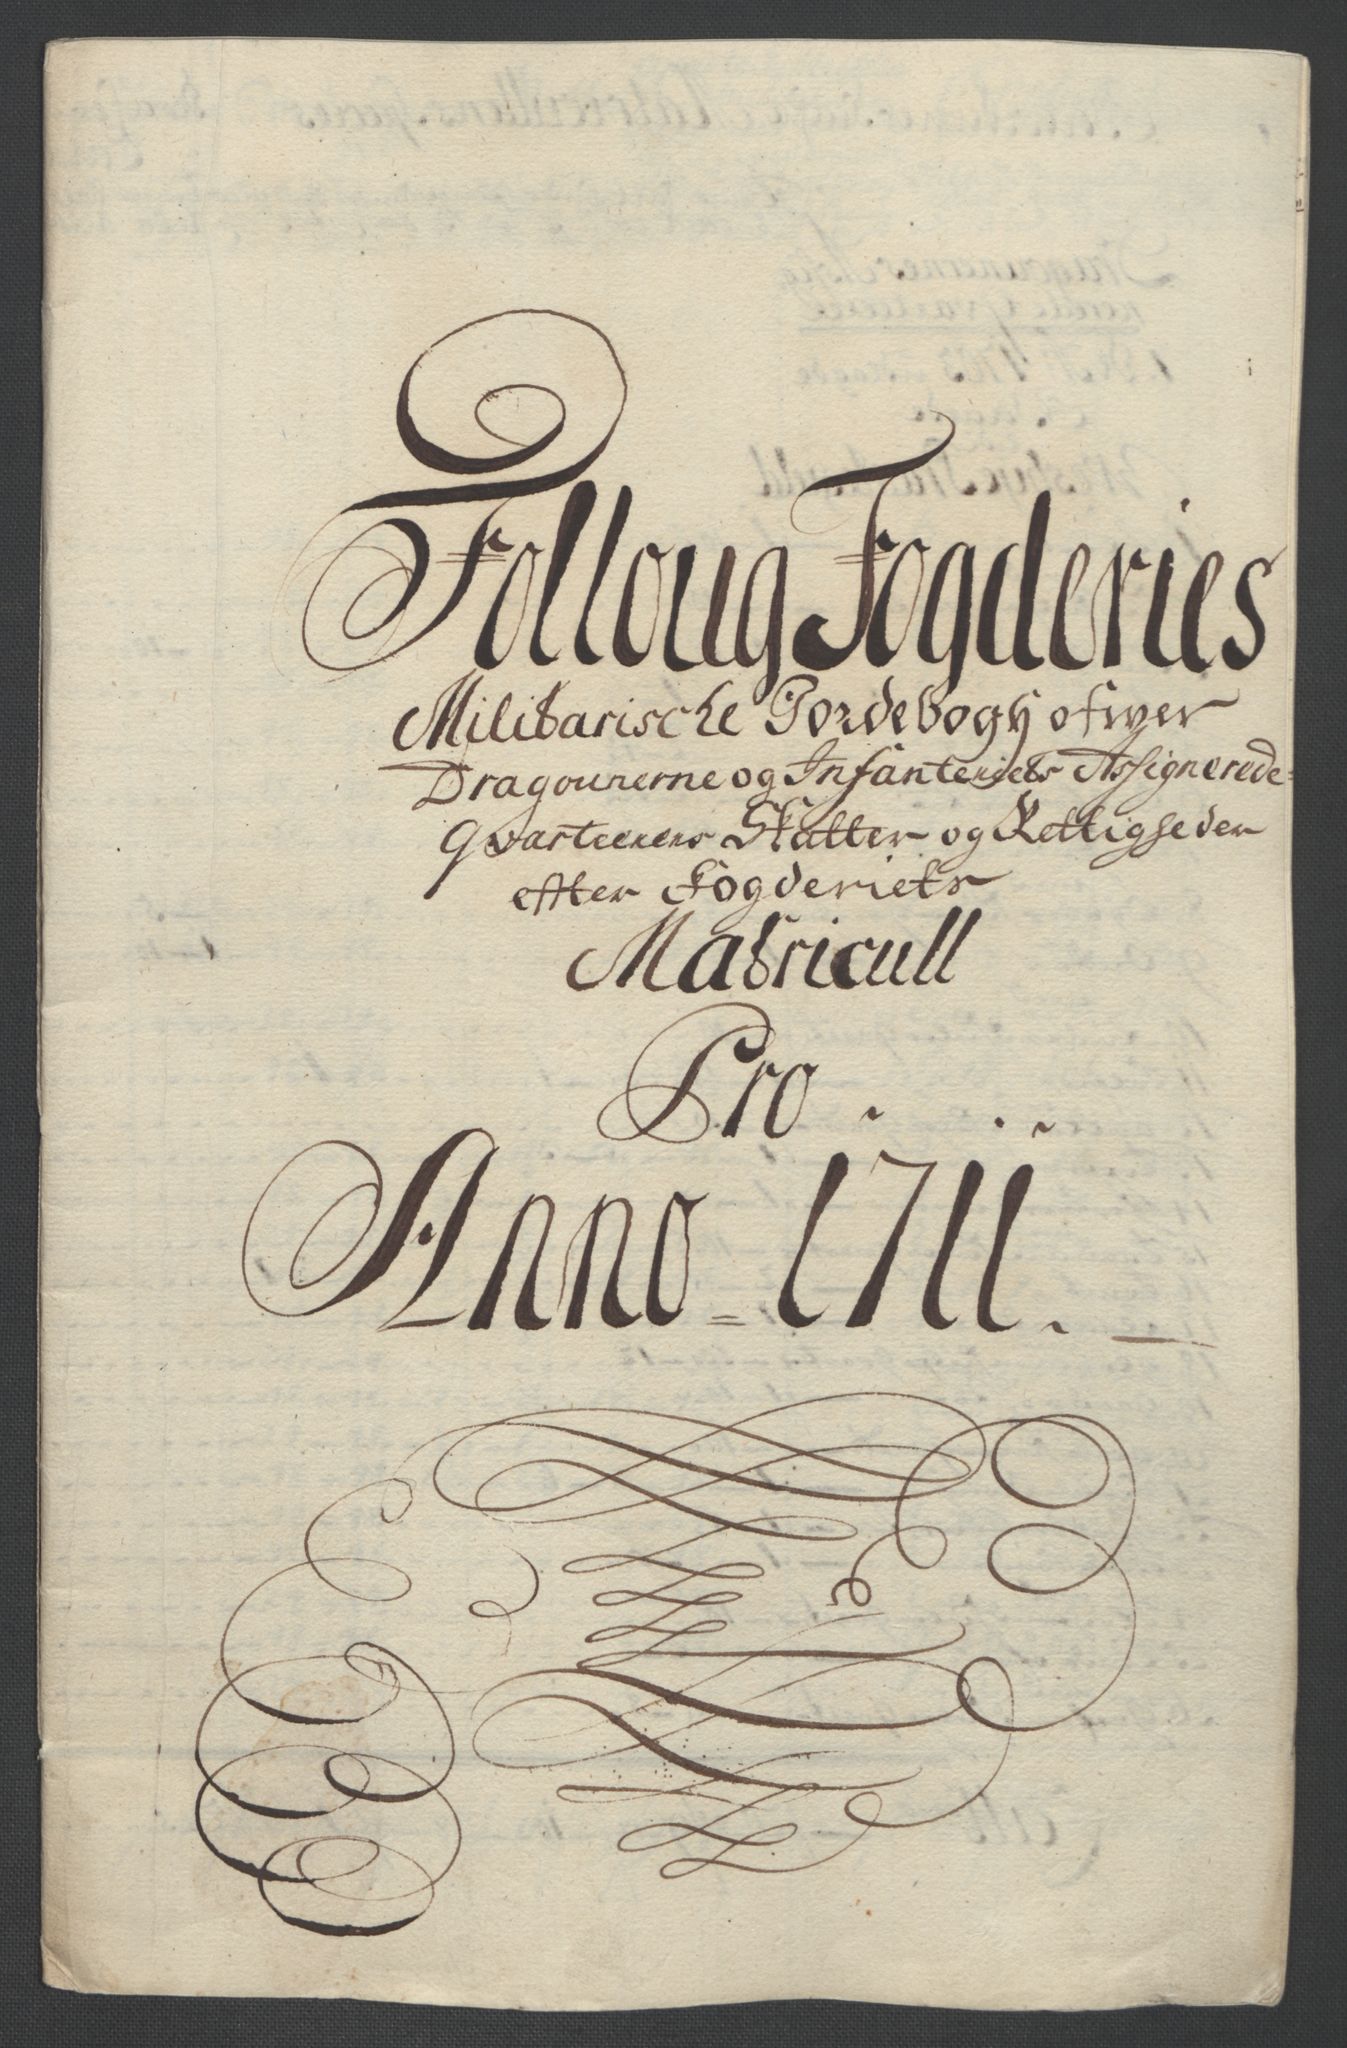 Folloug Fogderies
Militarische Jordebogh ofwer
Dragounerne og Infanteriets Assignerede
Qvarteerers Skatter og Rettigheder
efter Fogderiets
Matricull
Pro
Anno = 1711.